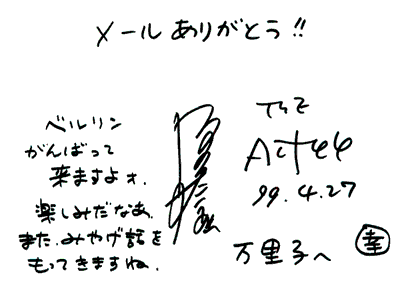 メールありがとう!!
ベルリン
がんばって
来ますよォ.
楽しみだなあ.
また、みやげ話を
もってきますね.
THE
ALFEE
99.4.27
万里子へ
幸